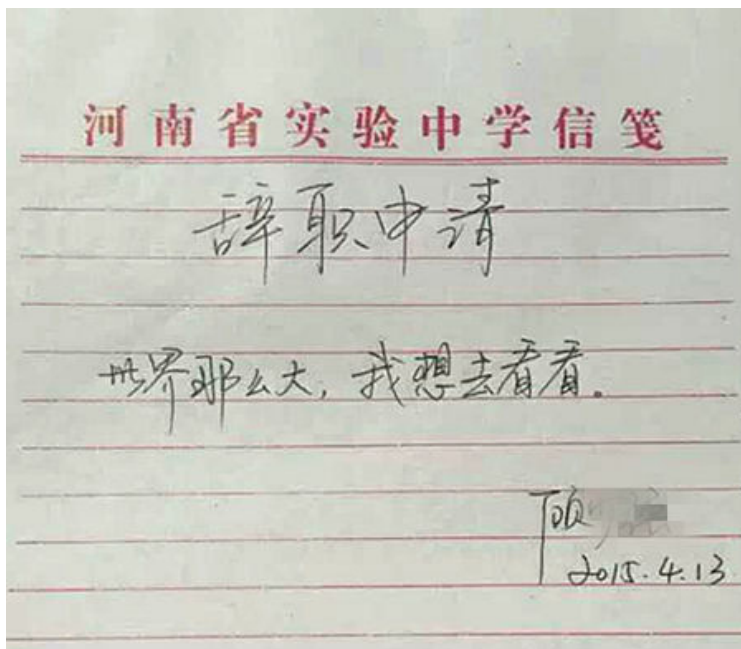 河南省实验中学信笺
辞职申请
世界那么大，我想去看看。
顾
2015.4.13